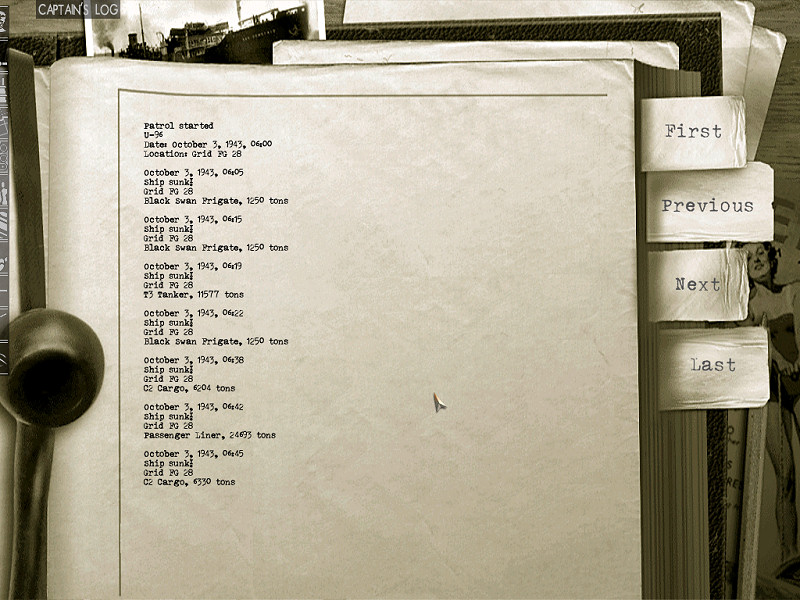 CAPTAIN'S LOG
Patrol started
U-96
Date: October 3, 1943, 06:00
Location: Grid FG 28
October 3, 1943, 06:05
Ship sunk!
Grid FG 28
Black Swan Frigate, 1250 tons
October 3, 1943, 06:15
Ship sunk!
Grid FG 28
Black Swan Frigate, 1250 tons
October 3, 1943, 06:19
Ship sunk!
Grid FG 28
T3 Tanker, 11577 tons
October 3, 1943, 06:22
Ship sunk!
Grid FG 28
Black Swan Frigate, 1250 tons
October 3, 1943, 06:38
Ship sunk!
Grid FG 28
C2 Cargo, 6204 tons
October 3, 1943, 06:42
Ship sunk!
Grid FG 28
Passenger Liner, 24693 tons
October 3, 1943, 06:45
Ship sunk!
Grid FG 28
C2 Cargo, 6330 tons
First
Previous
Next
Last